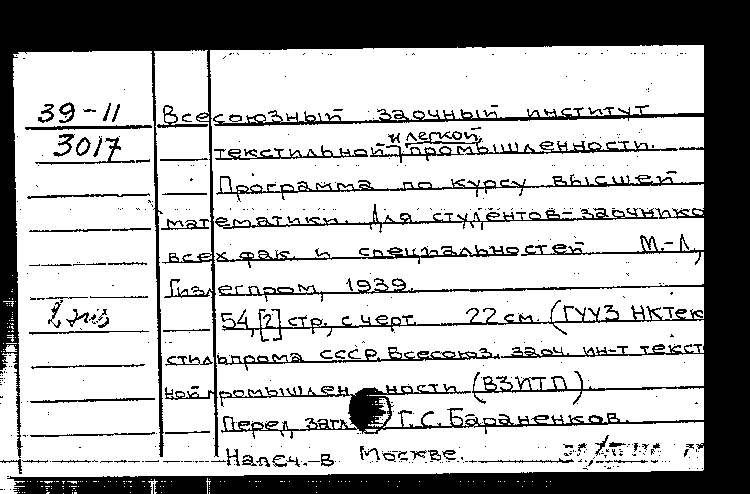 39-11 Всесоюзный заочный институт
3017 текстильной и легкой промышленности.
Программа по курсу высшей
математики. Для студентов-заочнико
всех фак. и специальностей М.-Л,
Гизлегпром, 1939.
2 экз 54,[2] стр, с черт. 22 см. (ГУУЗ НКТек
стильпрома СССР. Всесоюз. заоч. ин-т текст
ной промышленности (ВЗИТП).
Перед загл. Г.С. Бараненков.
Напеч. в Москве.